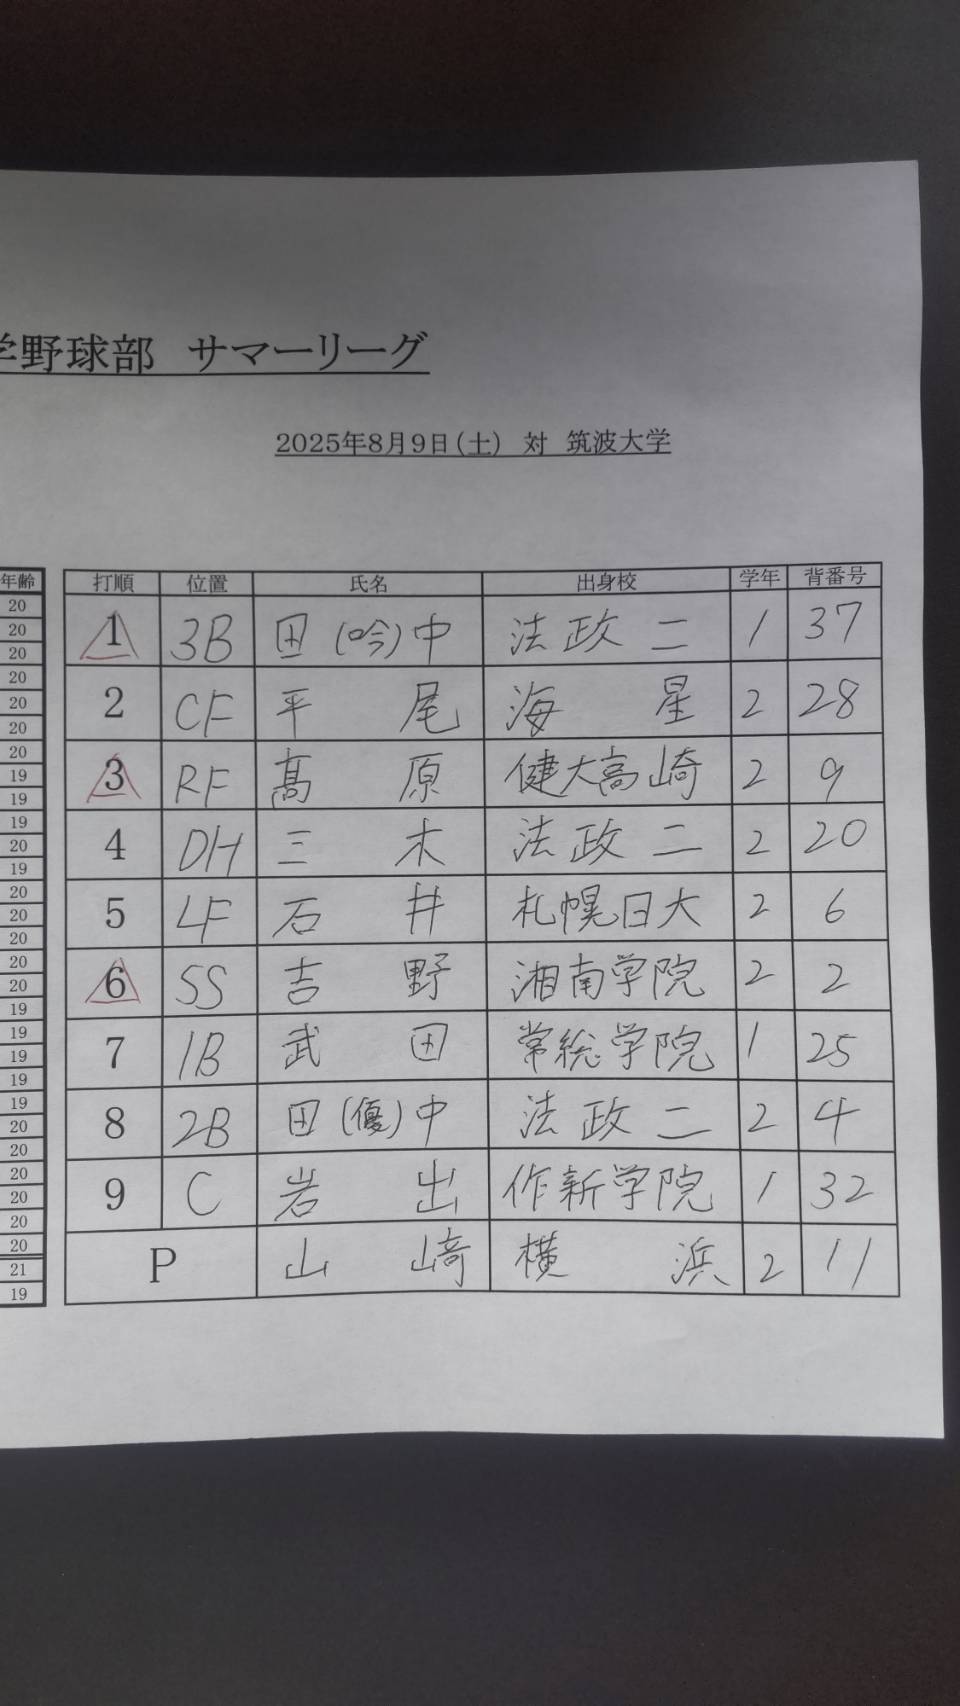 学野球部 サマーリーグ
2025年8月9日(土) 対 筑波大学
年齢
20
20
20
20
20
20
20
19
19
19
20
19
20
20
20
20
20
19
19
19
19
19
20
20
20
20
20
20
21
19
打順 位置 氏名 出身校 学年 背番号
1 3B 田(吟)中 法政二 1 37
2 CF 平尾 海星 2 28
3 RF 髙原 健大高崎 2 9
4 DH 三木 法政二 2 20
5 LF 石井 札幌日大 2 6
6 SS 吉野 湘南学院 2 2
7 1B 武田 常総学院 1 25
8 2B 田(優)中 法政二 2 4
9 C 岩出 作新学院 1 32
P 山﨑 横浜 2 11